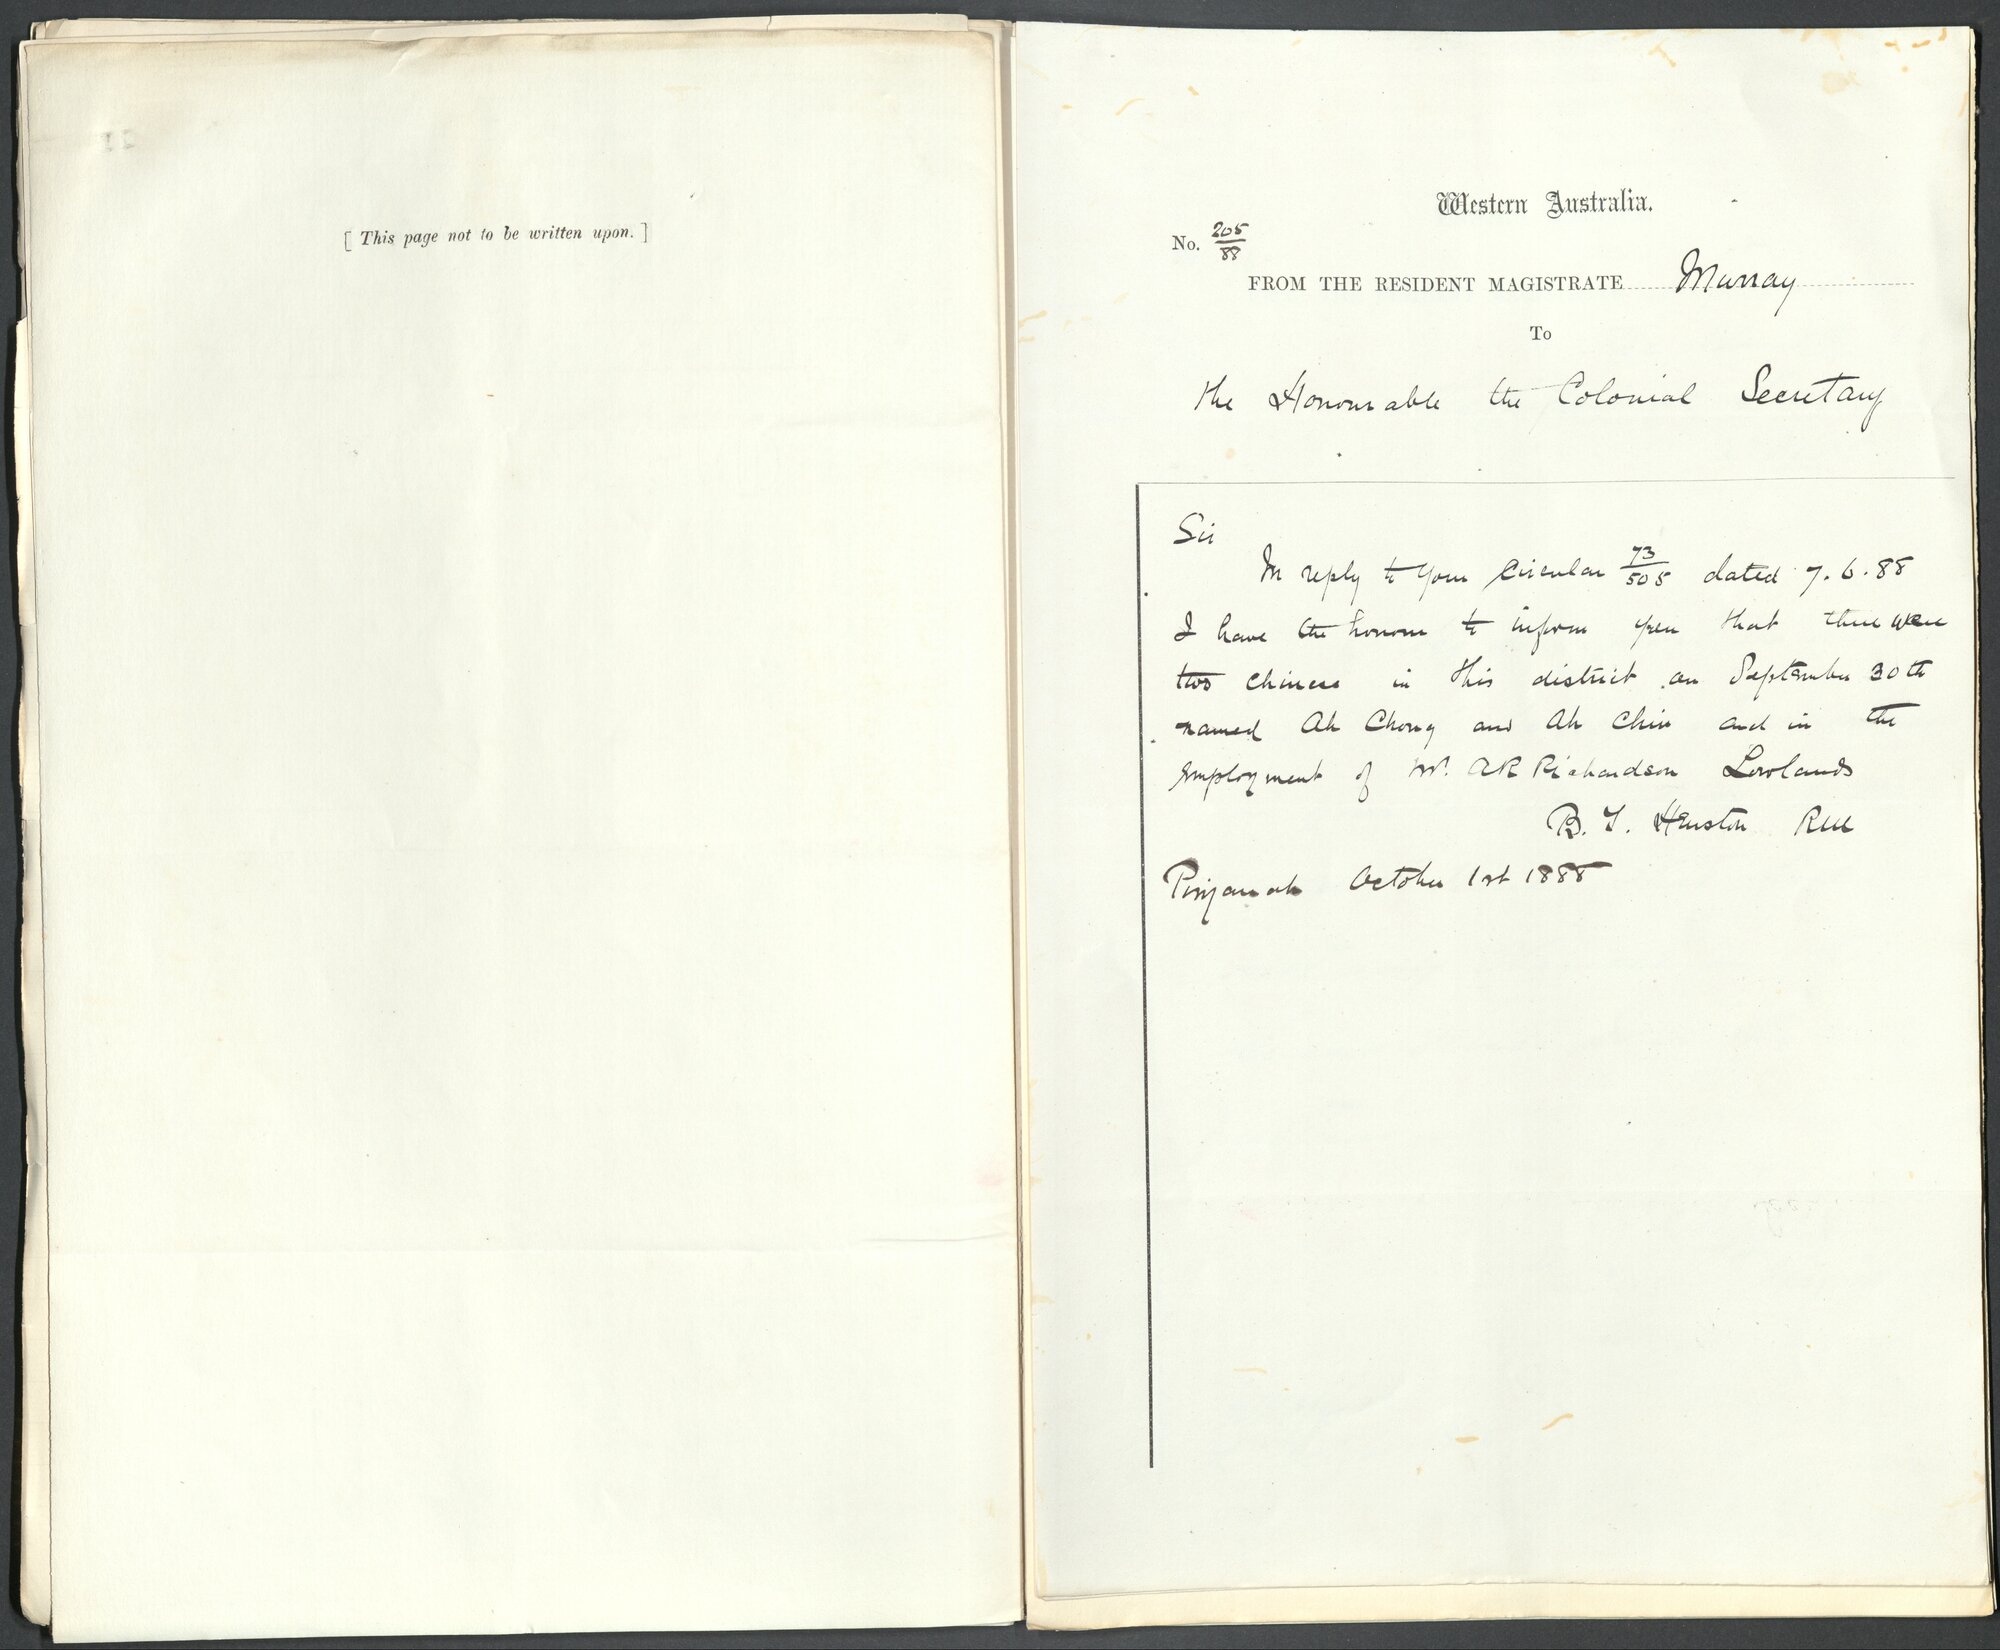 [ This page not to be written upon. ]
Western Australia.
No. 205/88
FROM THE RESIDENT MAGISTRATE Murray
To
the Honourable the Colonial Secretary
Sir
In reply to your Circular 73/505 dated 7.6.88
I have the honour to inform you that there were
two Chinese in this district on September 30th
named Ah Chong and Ah Chin and in the
employment of Mr. A R Richardson Lowlands
October 1st 1888